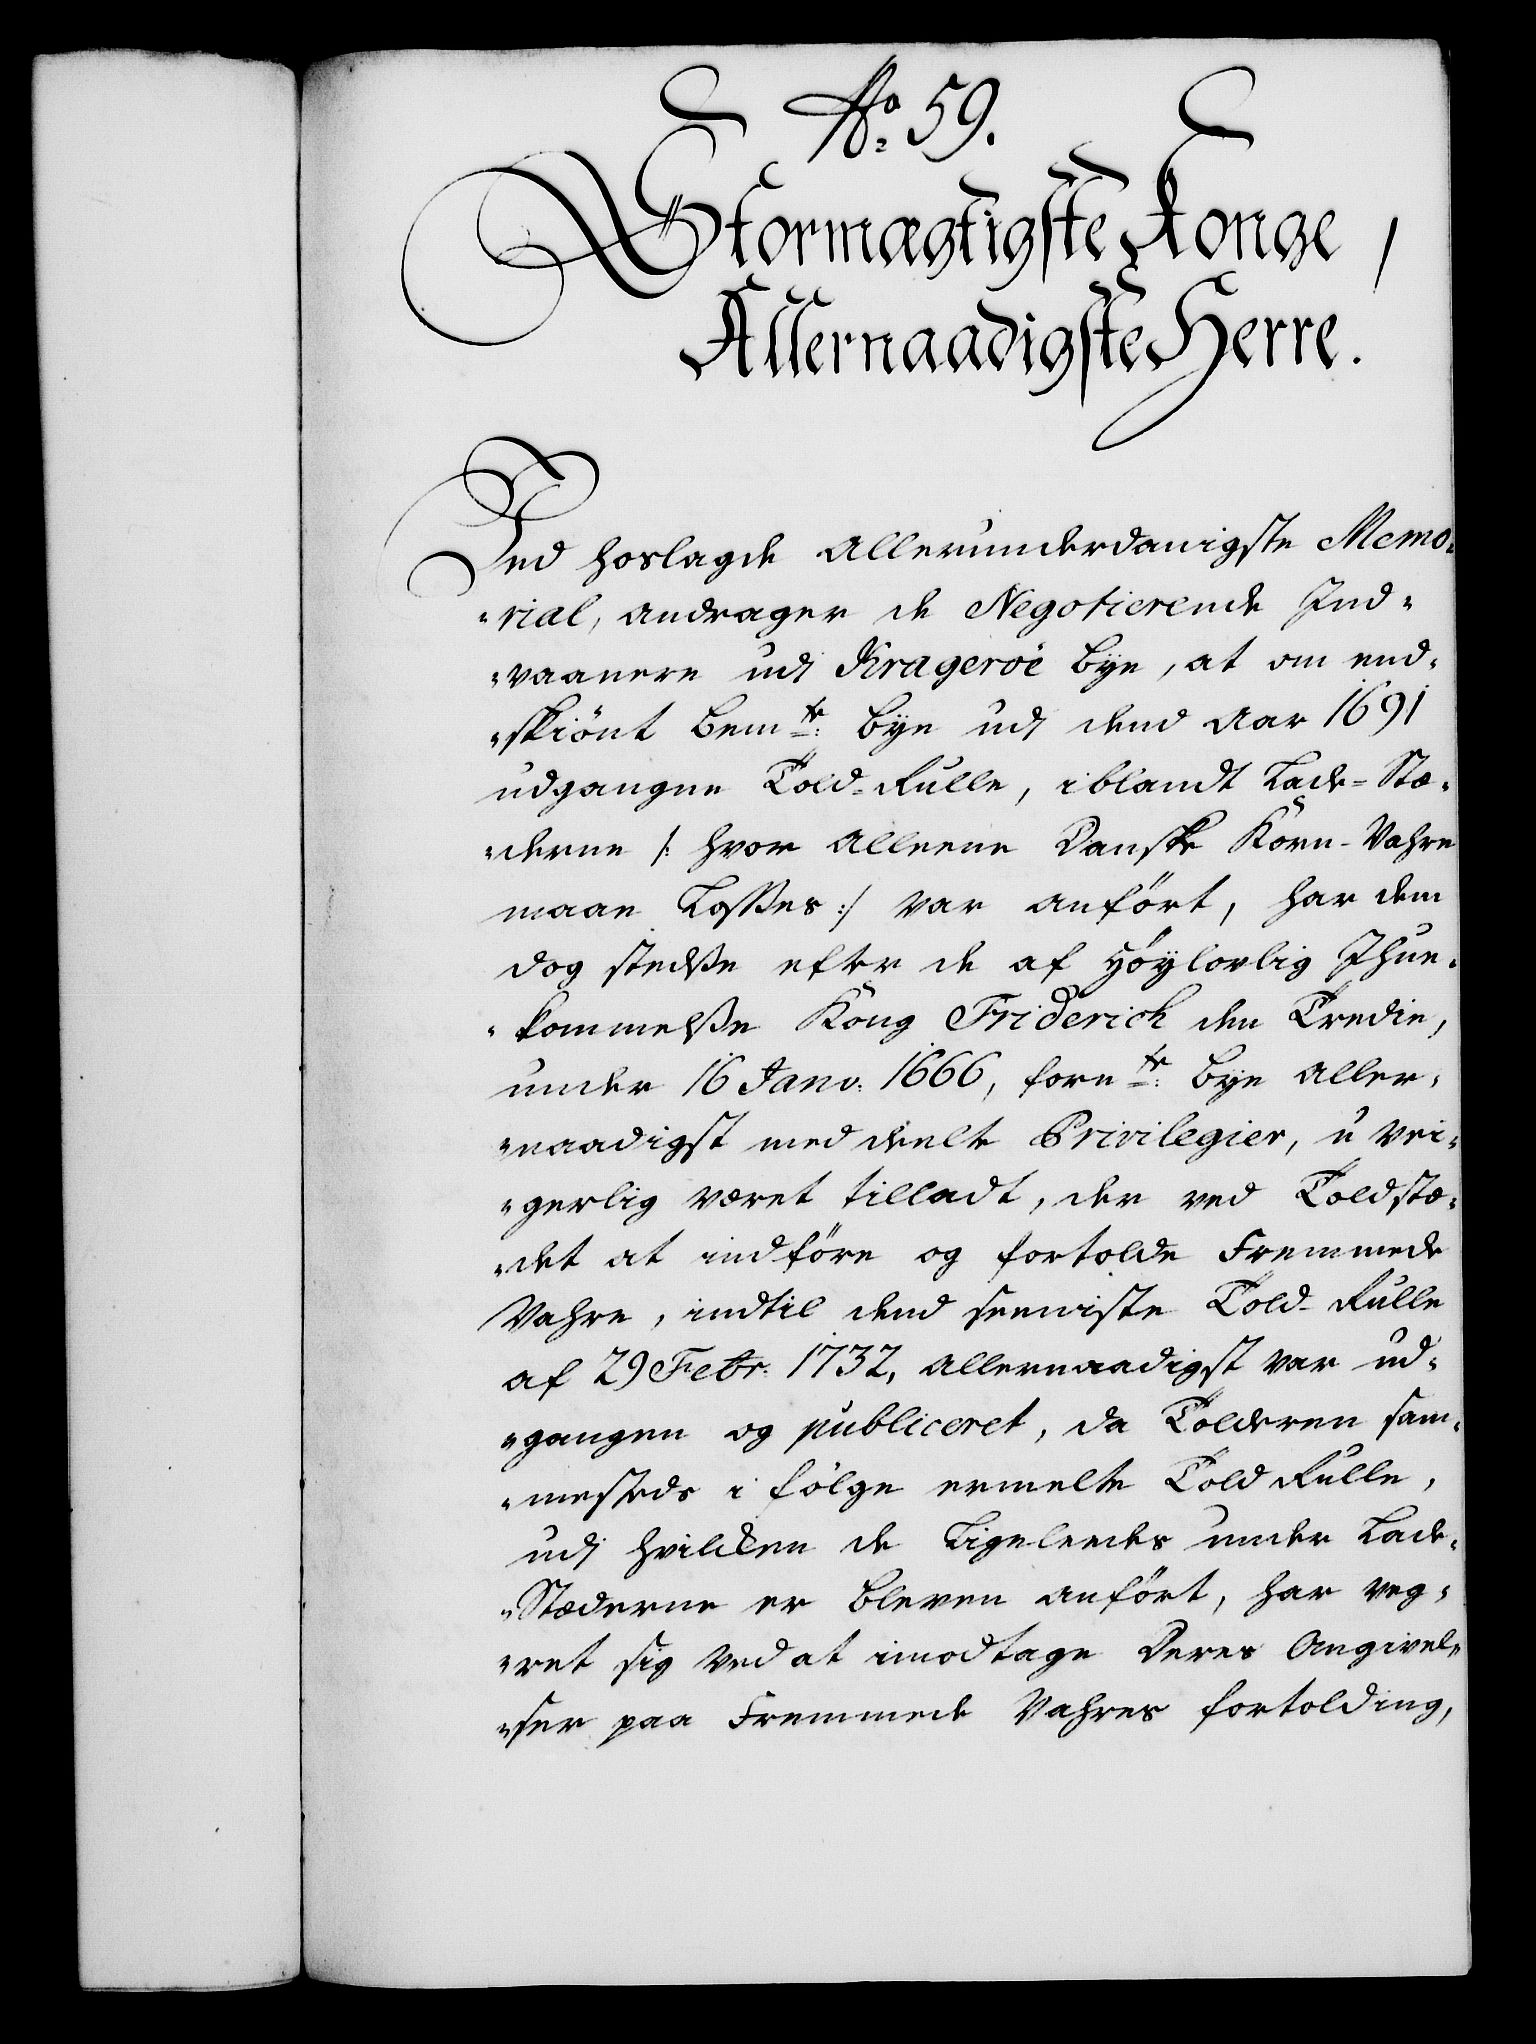 No. 59.
Stormægtigste Konge,
Allernaadigste Herre.
Ved hoslagde allerunderdanigste Memo-
-rial, andrager de Negotierende Ind-
-vaanere udj Krageröe bye, at om end-
-skiönt bemte: bye udj dend Aar 1691
udgangne Told-Rulle, iblandt Lade-Stæ-
-derne /: hvor alleene Danske Korn-Vahre
maae Losses :/ var anført, har dem
dog stedsse efter de af Høylovlig Ihue-
-kommelsse Kong Friderich den Tredie,
under 16 Janv: 1666, fornte: bye aller-
-naadigst meddeelte Privilegier, uvei-
-gerlig været tilladt, der ved Toldstæ-
-det at indföre og fortolde Fremmede
Vahre, indtil dend seeniste Told-Rulle
af 29 Febr: 1732, allernaadigst var ud-
-gangen og publiceret, da Tolderen sam-
-mesteds i følge ermelte Told Rulle,
udj hvilcken de Ligeleedes under Lade-
-Stæderne er bleven anført, har veg-
-ret sig ved at imodtage Deres Angivel-
-ser paa Fremmede Vahres fortolding,